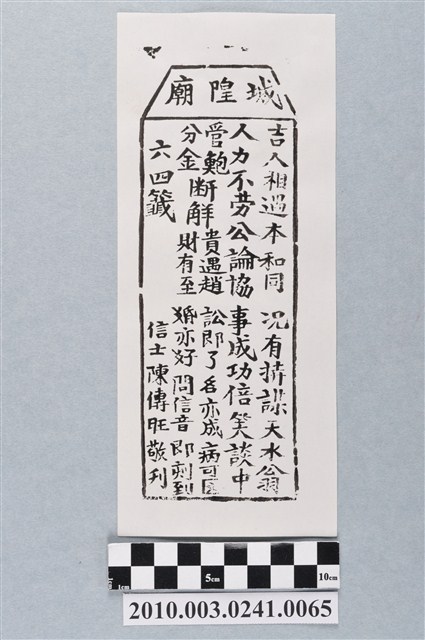 城隍廟
吉人相遇本和同 況有持謀天水翁
人力不勞公論協 事成功倍笑談中
管鮑
分金
斷解
貴遇趙 訟即了名亦成病可医
財有至 婚亦好問信音即刻到
六四籤
信士陳傳旺敬刊
1cm 5cm 10cm
2010.003.0241.0065